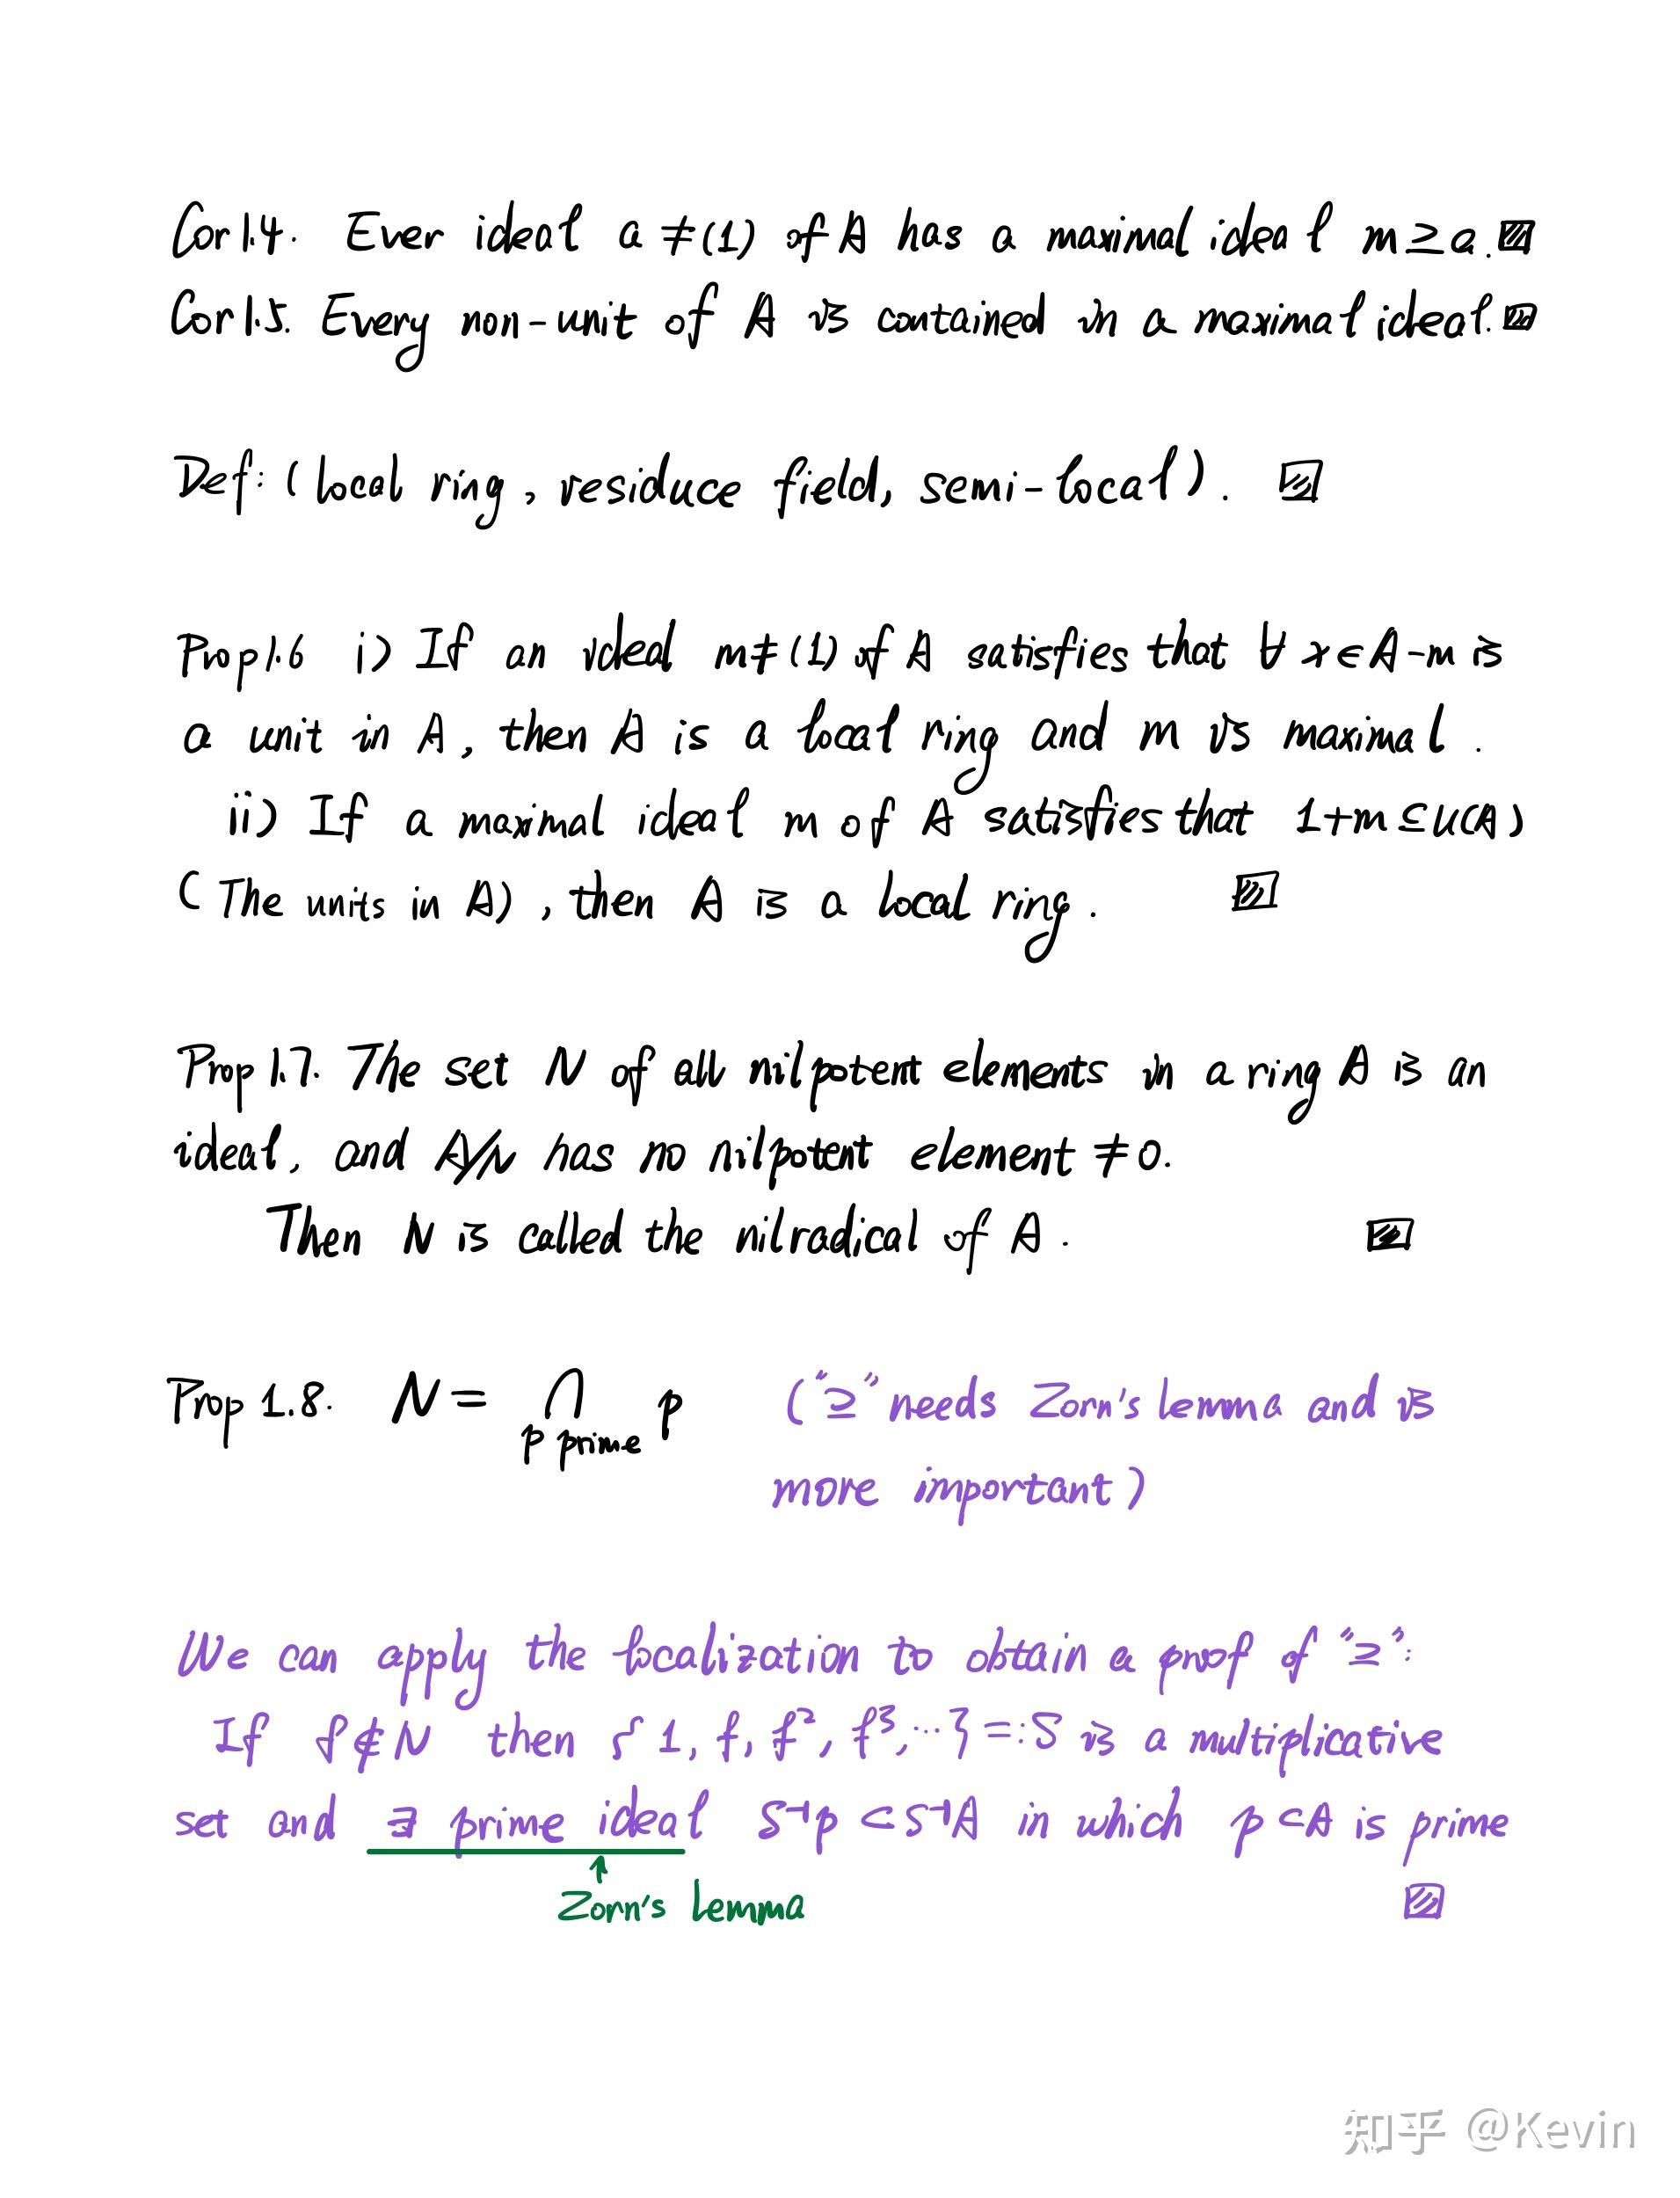 Cor 1.4. Ever ideal a ≠ (1) of A has a maximal ideal m ⊇ a.
Cor 1.5. Every non-unit of A is contained in a maximal ideal.
Def: (local ring, residuce field, semi-local).
Prop 1.6 i) If an ideal m ≠ (1) of A satisfies that ∀ x ∈ A - m is
a unit in A, then A is a local ring and m is maximal.
ii) If a maximal ideal m of A satisfies that 1+m ⊆ U(A)
(The units in A), then A is a local ring.
Prop 1.7. The set N of all nilpotent elements in a ring A is an
ideal, and A/N has no nilpotent element ≠ 0.
Then N is called the nilradical of A.
Prop 1.8. N = ∩ p ("⊇" needs Zorn's lemma and is
p prime
more important)
We can apply the localization to obtain a proof of "⊇":
If f ∉ N then {1, f, f², f³, ...} =: S is a multiplicative
set and ∃ prime ideal S⁻¹p ⊂ S⁻¹A in which p ⊂ A is prime
↑
Zorn's Lemma
知乎 @Kevin